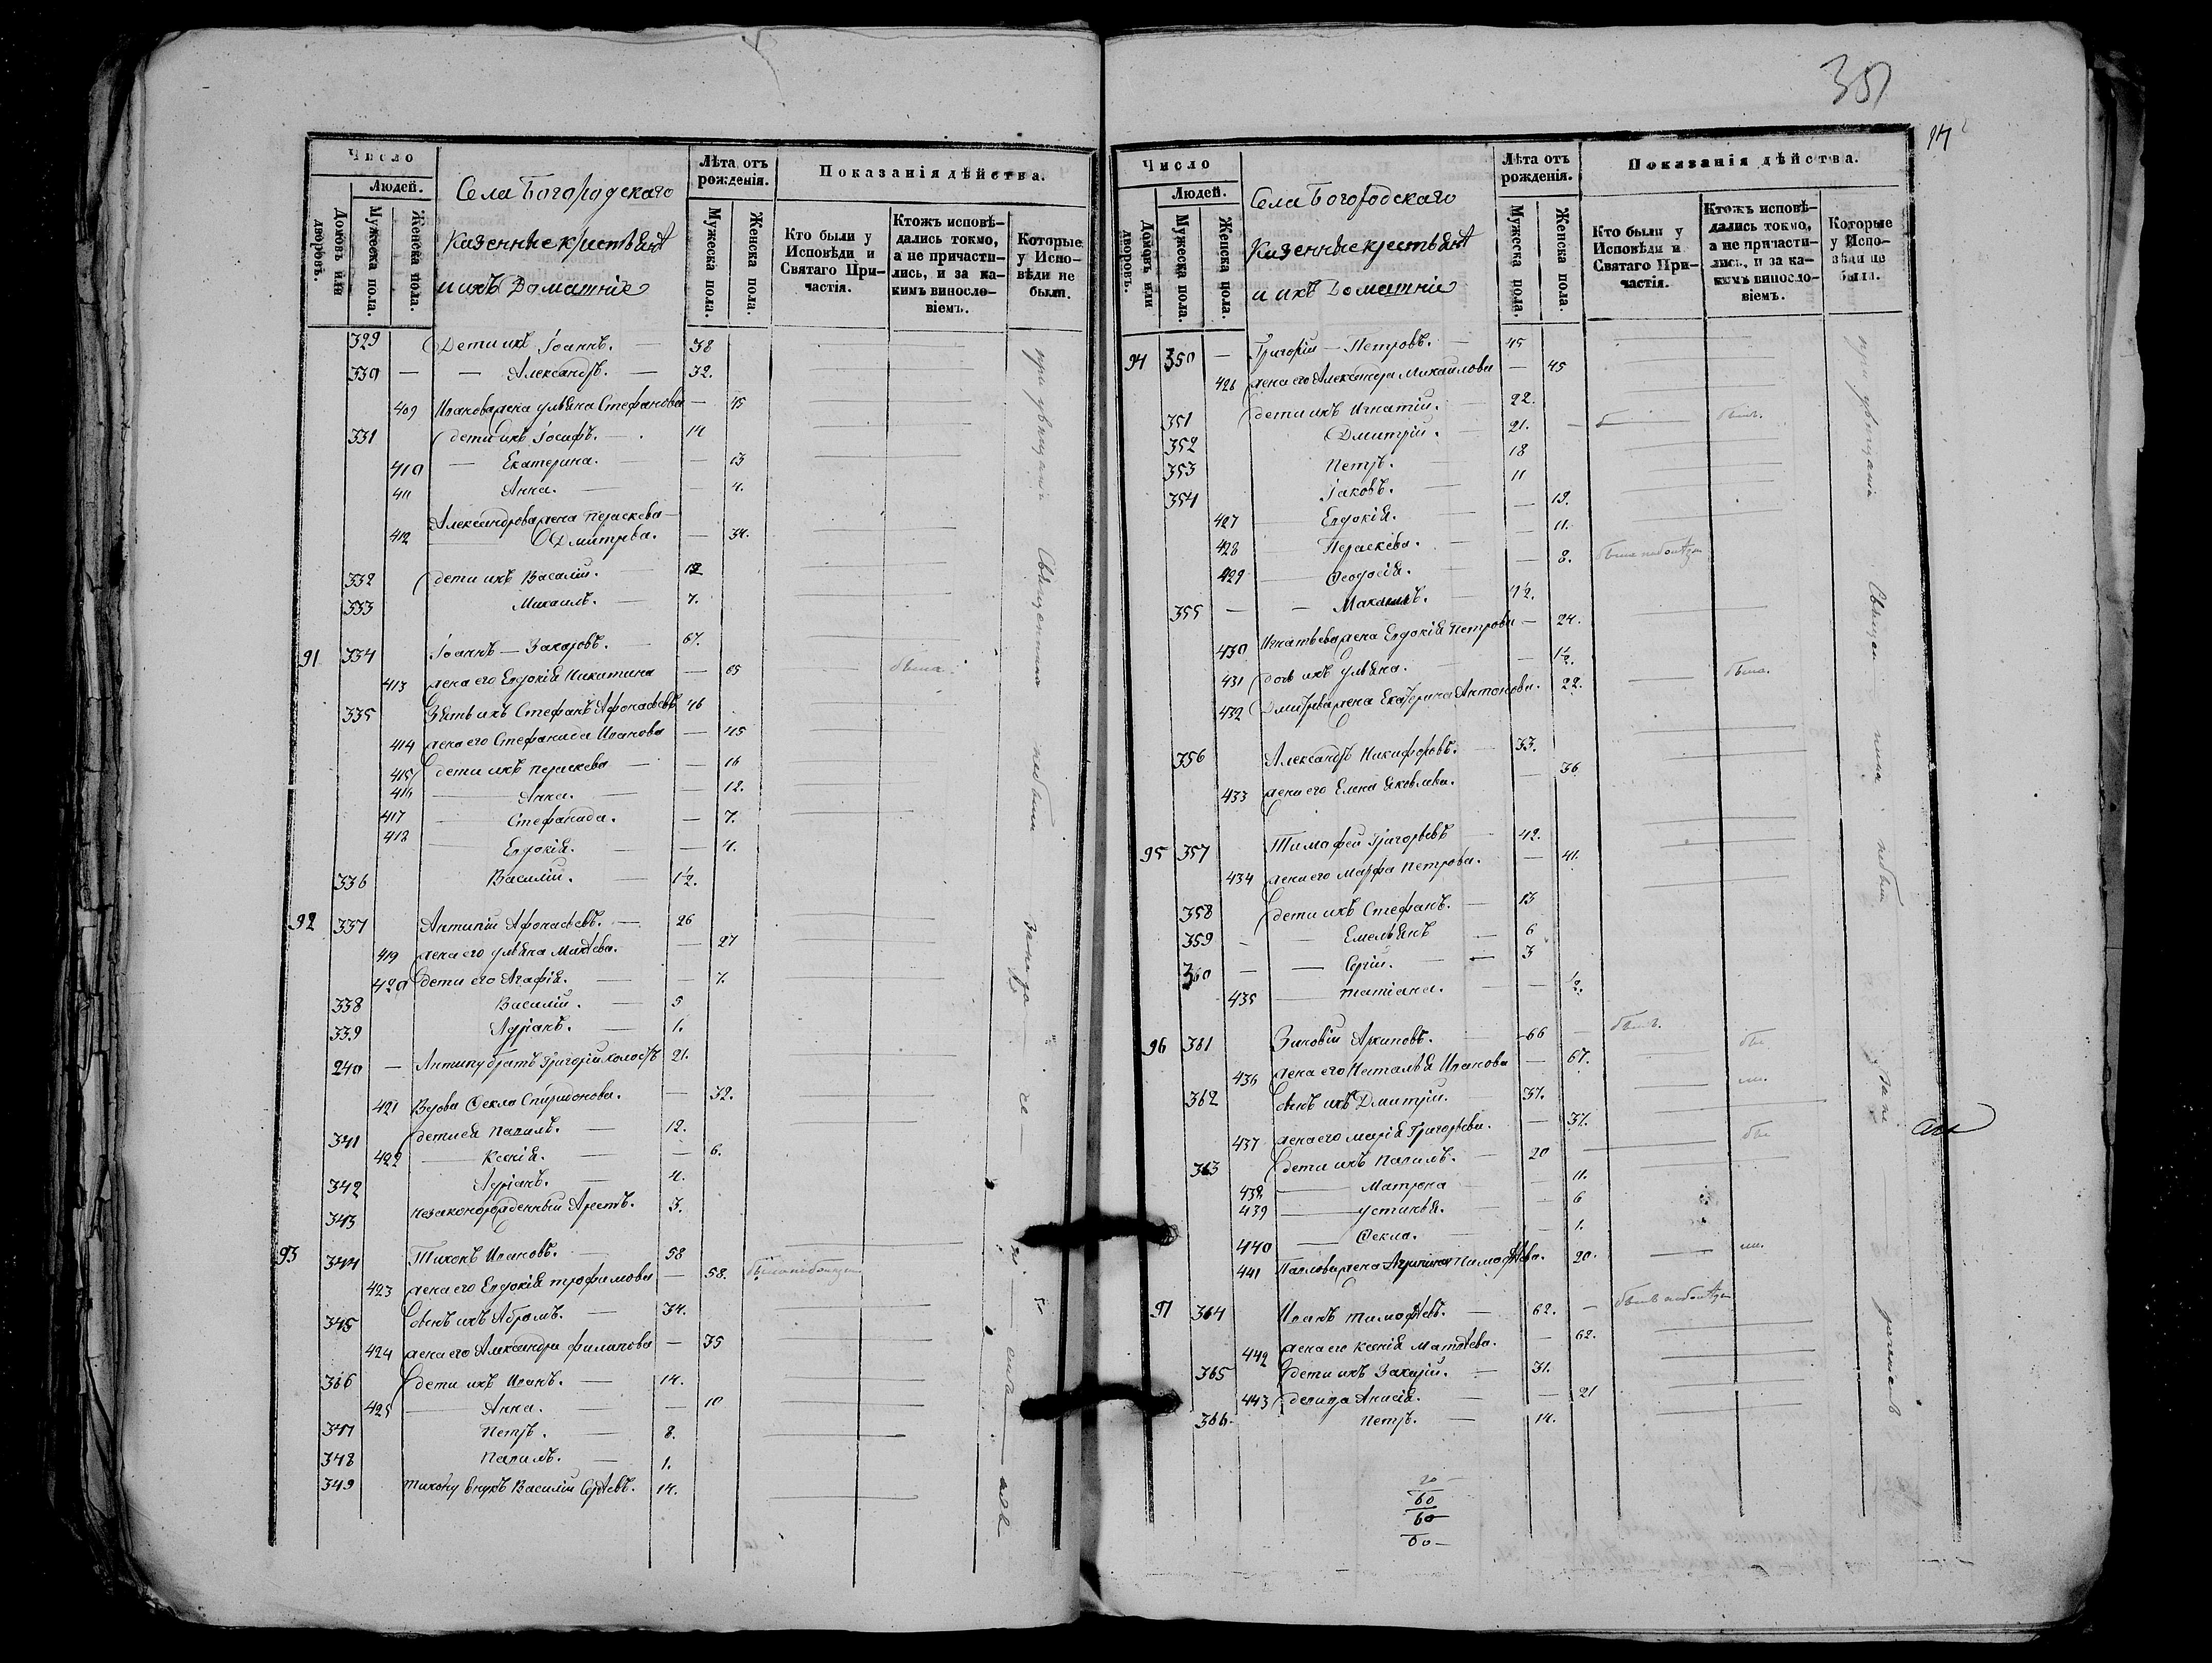 Число
Людей.
Домовъ или дворовъ.
Мужеска пола.
Женска пола.
Села Богородскаго
Казенные крестьянѣ
и ихъ Домашніе
Лѣта отъ рожденія.
Мужеска пола.
Женска пола.
Показанія дѣйства.
Кто были у Исповѣди и Святаго Причастія.
Ктожъ исповѣдались токмо, а не причастились, и за какимъ винословіемъ.
Которые у Исповѣди не были.
329 Дети ихъ Іоаннъ. — 38
330 — — Александръ. — 32.
409 Иванова жена Ульяна Стефанова — 45
331 дети ихъ Іосифъ. — 14
410 — Екатерина. — 13
411 Анна. — 4.
Александрова жена Параскева
412 Дмитрева. — 34.
332 дети ихъ Василій. 12
333 Михаилъ. — 7.
91 334 Іоаннъ — Захаровъ. — 67.
413 жена его Евдокія Никитина — 65 была
335 Зять ихъ Стефанъ Афонасьевъ 46
414 жена его Стефанида Иванова — 45
415 дети ихъ Параскева — 16
416 Анна. — 12.
417 Стефанида. — 7.
418 Евдокія. — 4.
336 Василій. — 1½.
92 337 Антипій Афонасьевъ. — 26
419 жена его Ульяна Матѳева. — 27
420 дети его Агафія. — 7.
338 Василій. — 5
339 Адріанъ. — 1.
240 — Антипу братъ Григорій холостъ 21.
421 Вдова Ѳекла Спиридонова. — 32.
341 дети ея Павилъ. — 12.
422 Ксенія. — 6.
342 Адріанъ. — 4.
343 незаконорожденный Арестъ. 3.
93 344 Тихонъ Ивановъ. — 58
423 жена его Евдокія Трофимова — 58.
345 сынъ ихъ Абрамъ. — 34.
424 жена его Александра Филипова — 35
366 дети ихъ Иванъ. — 14.
425 Анна. — 10
347 Петръ. — 8.
348 Павилъ. — 1.
349 Тихону внукъ Василій Сергѣевъ. 14.
351
Число
Людей.
Домовъ или дворовъ.
Мужеска пола.
Женска пола.
Села Богородскаго
Казенные крестьянѣ
и ихъ Домашніе
Лѣта отъ рожденія.
Мужеска пола.
Женска пола.
Показанія дѣйства.
Кто были у Исповѣди и Святаго Причастія.
Ктожъ исповѣдались токмо, а не причастились, и за какимъ винословіемъ.
Которые у Исповѣди не были.
94 350 — Григорій — Петровъ. — 45
426 жена его Александра Михайлова — 45
351 дети ихъ Игнатій. — 22.
352 Дмитрій. — 21.
353 Петръ. 18
354 Іаковъ. 11
427 Евдокія. — 19.
428 Параскева. — 11.
429 Ѳеодосія. — 8.
355 — — Михаилъ. — 1½.
430 Игнатьева жена Евдокія Петрова — 24.
431 дочь ихъ Ульяна. — 1½.
432 Дмитрева жена Екатерина Антонова. 22. была.
356 Александръ Никифоровъ. — 33.
433 жена его Елена Яковлева. — 36
95 357 Тимофей Григорьевъ 42.
434 жена его Марфа Петрова. — 41.
358 дети ихъ Стефанъ. — 13
359 — Емельянъ — 6
360 — — Сергій. — 3
435 Татіана. — ½.
96 361 Зиновій Архиповъ. — 66
436 жена его Наталья Иванова — 67.
362 сынъ ихъ Дмитрій. 37.
437 жена его Марія Григорьева. — 37.
363 дети ихъ Павилъ. — 20
438 Матрона — 11.
439 Устинья. — 6
440 Ѳекла. — 1.
441 Павлова жена Тимофѣева. 20.
97 364 Иванъ Тимофѣевъ. — 62.
442 жена его Ксенія Матѳева. — 62.
365 дети ихъ Захарій. — 31.
443 девица Анисія. — 21
366 Петръ. — 14.
20
60
60
60